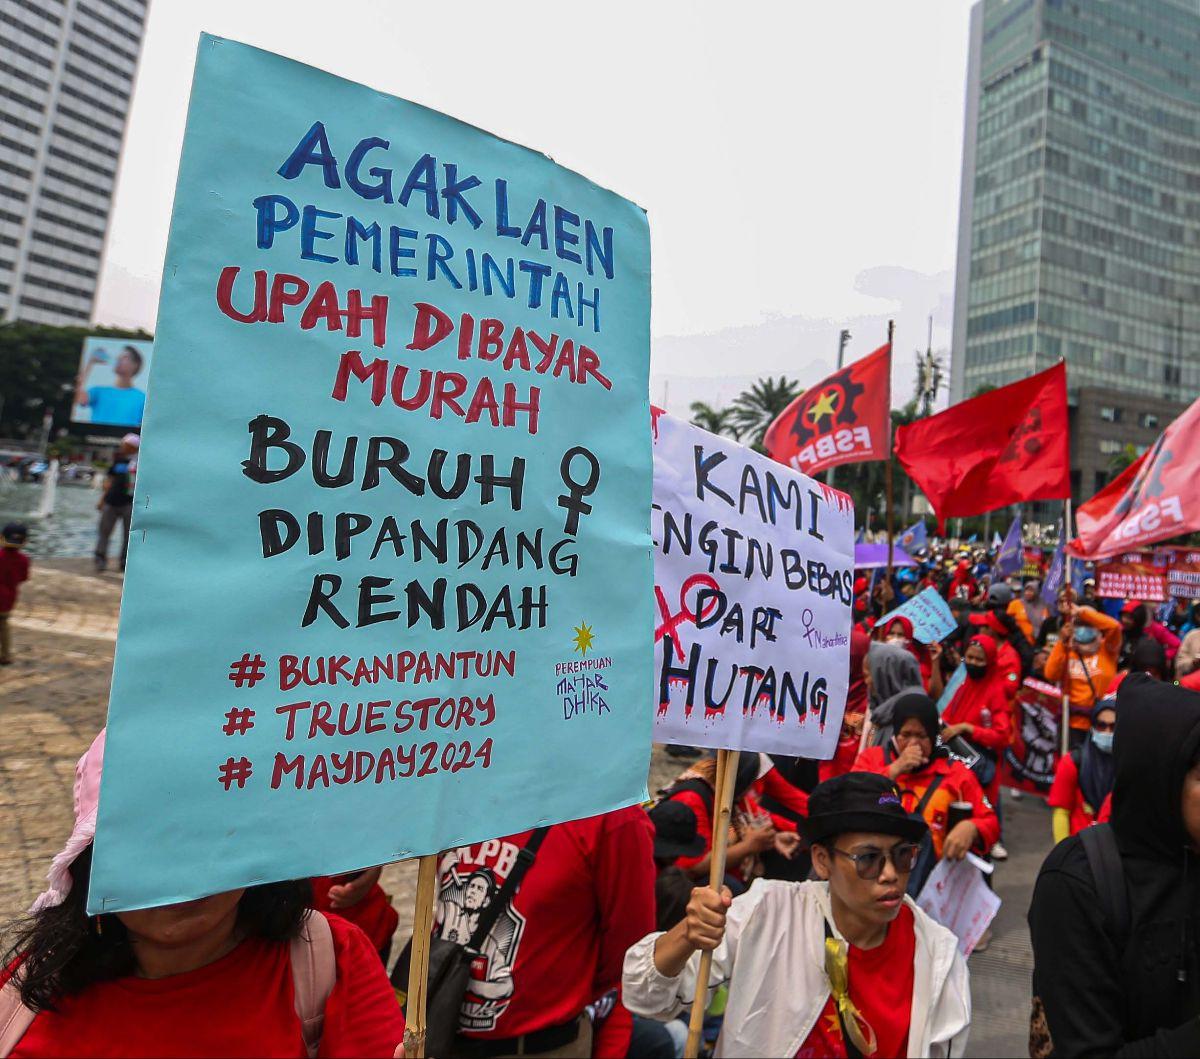 AGAK LAEN
PEMERINTAH
UPAH DIBAYAR
MURAH
BURUH ♀
DIPANDANG
RENDAH
# BUKANPANTUN
# TRUESTORY
# MAYDAY2024
PEREMPUAN
MAHAR
DHIKA
KAMI
NGIN BEBAS
DARI
HUTANG
Mahardhika
FSBPI
FSBPI